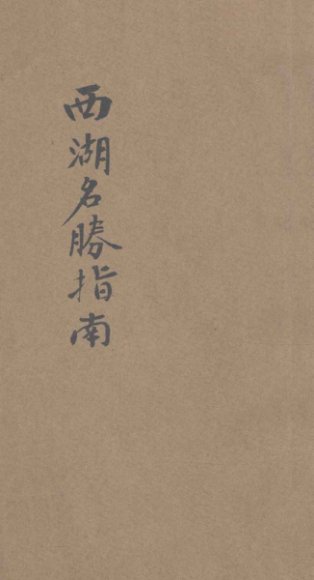 西湖名勝指南